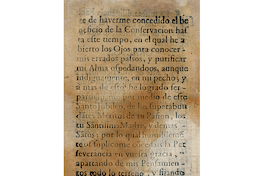 te de haverme concedido el be
neficio de la Conservacion has
ta este tiempo, en el qual he a
bierto los Ojos para conocer
mis errados passos, y purificar
mi Alma
indignamente, en mi pecho; y
si mas de esto he logrado
por medio de este
Santo Jubileo, de los superabun
dantes Meritos de tu Passion, los
de tu Santissima Madre, y demas
Santos; por lo qual
te suplico me concedas la Per
severancia en vuestra gracia,
apartando de mis Pensamien
tos todo lo terreno, y